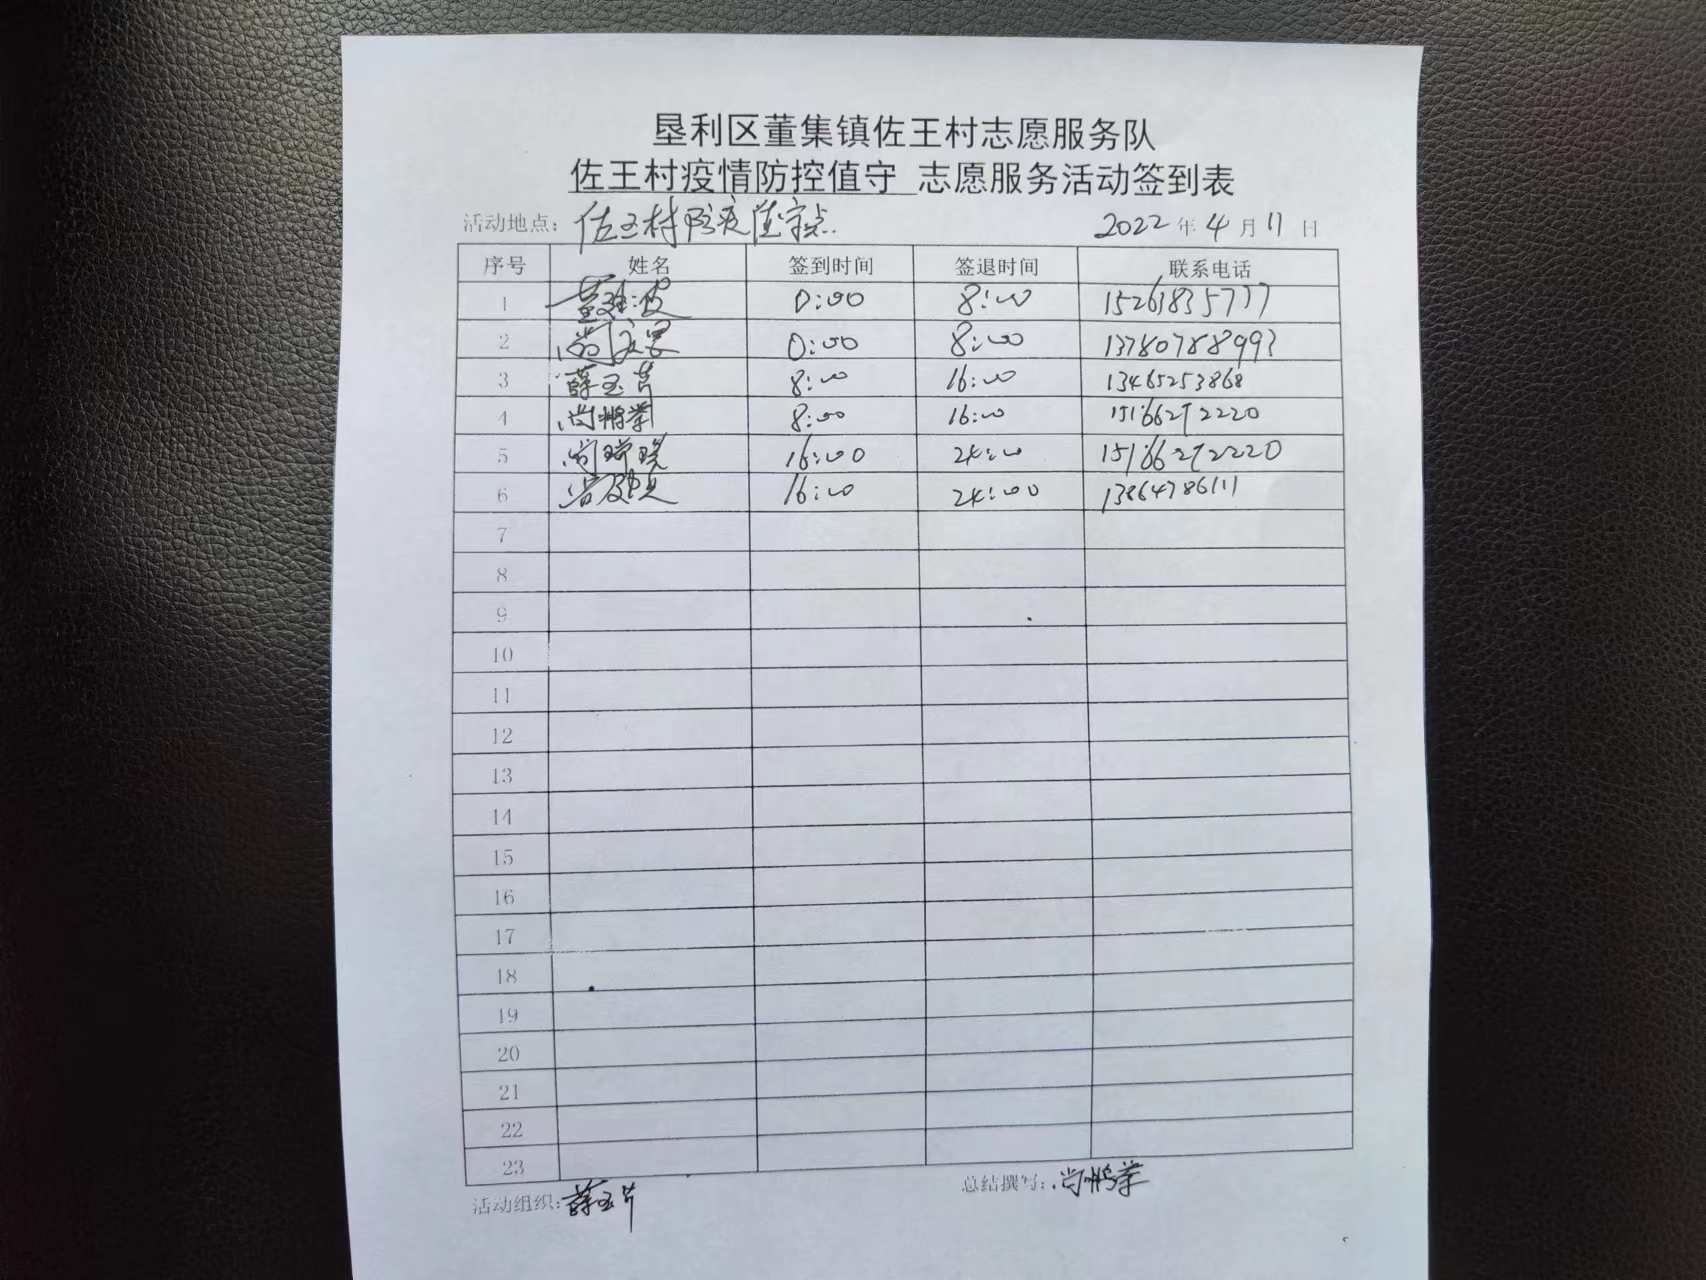 垦利区董集镇佐王村志愿服务队
佐王村疫情防控值守 志愿服务活动签到表
活动地点: 佐王村防疫值守点 2022年4月11日
序号 姓名 签到时间 签退时间 联系电话
1 0:00 8:00 15261835777
2 0:00 8:00 13780788993
3 薛玉芳 8:00 16:00 13465253868
4 尚鹏举 8:00 16:00 15166292220
5 尚瑞 16:00 24:00 15166292220
6 16:00 24:00 13864786111
7
8
9
10
11
12
13
14
15
16
17
18
19
20
21
22
23
活动组织: 薛玉芳 总结撰写: 尚鹏举